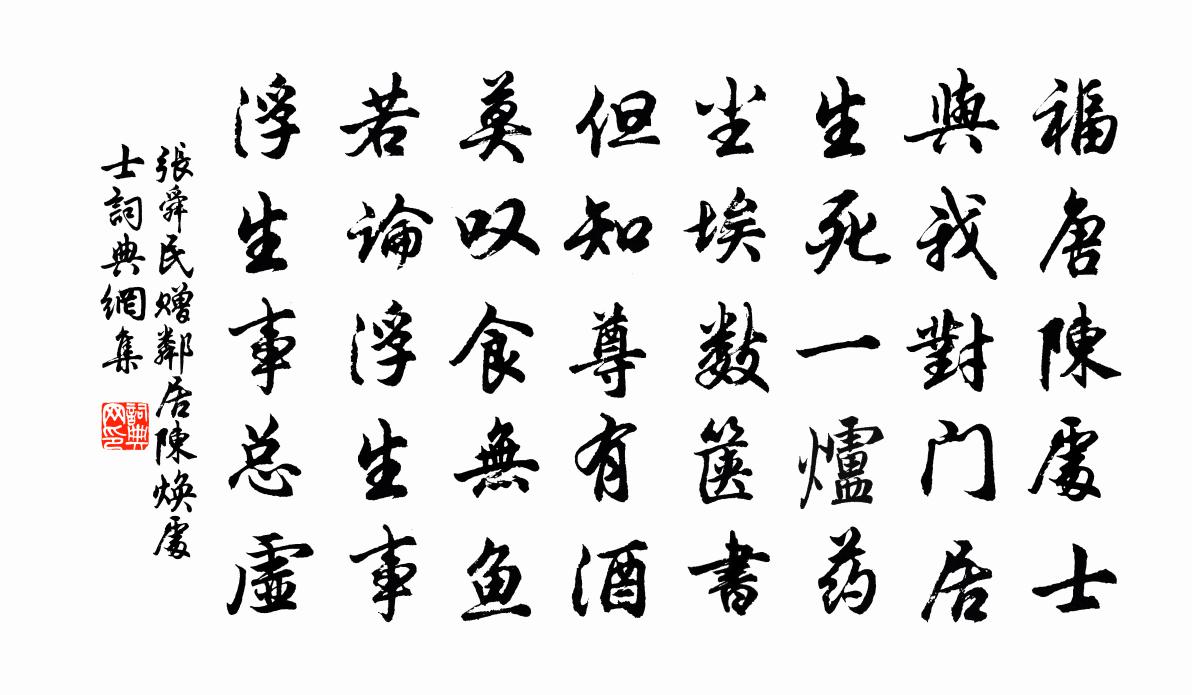 福唐陳處士
與我對门居
生死一爐药
尘埃数箧書
但知尊有酒
莫叹食無鱼
若論浮生事
浮生事总虛
張舜民赠鄰居陳焕處
士詞典網集
詞典网印